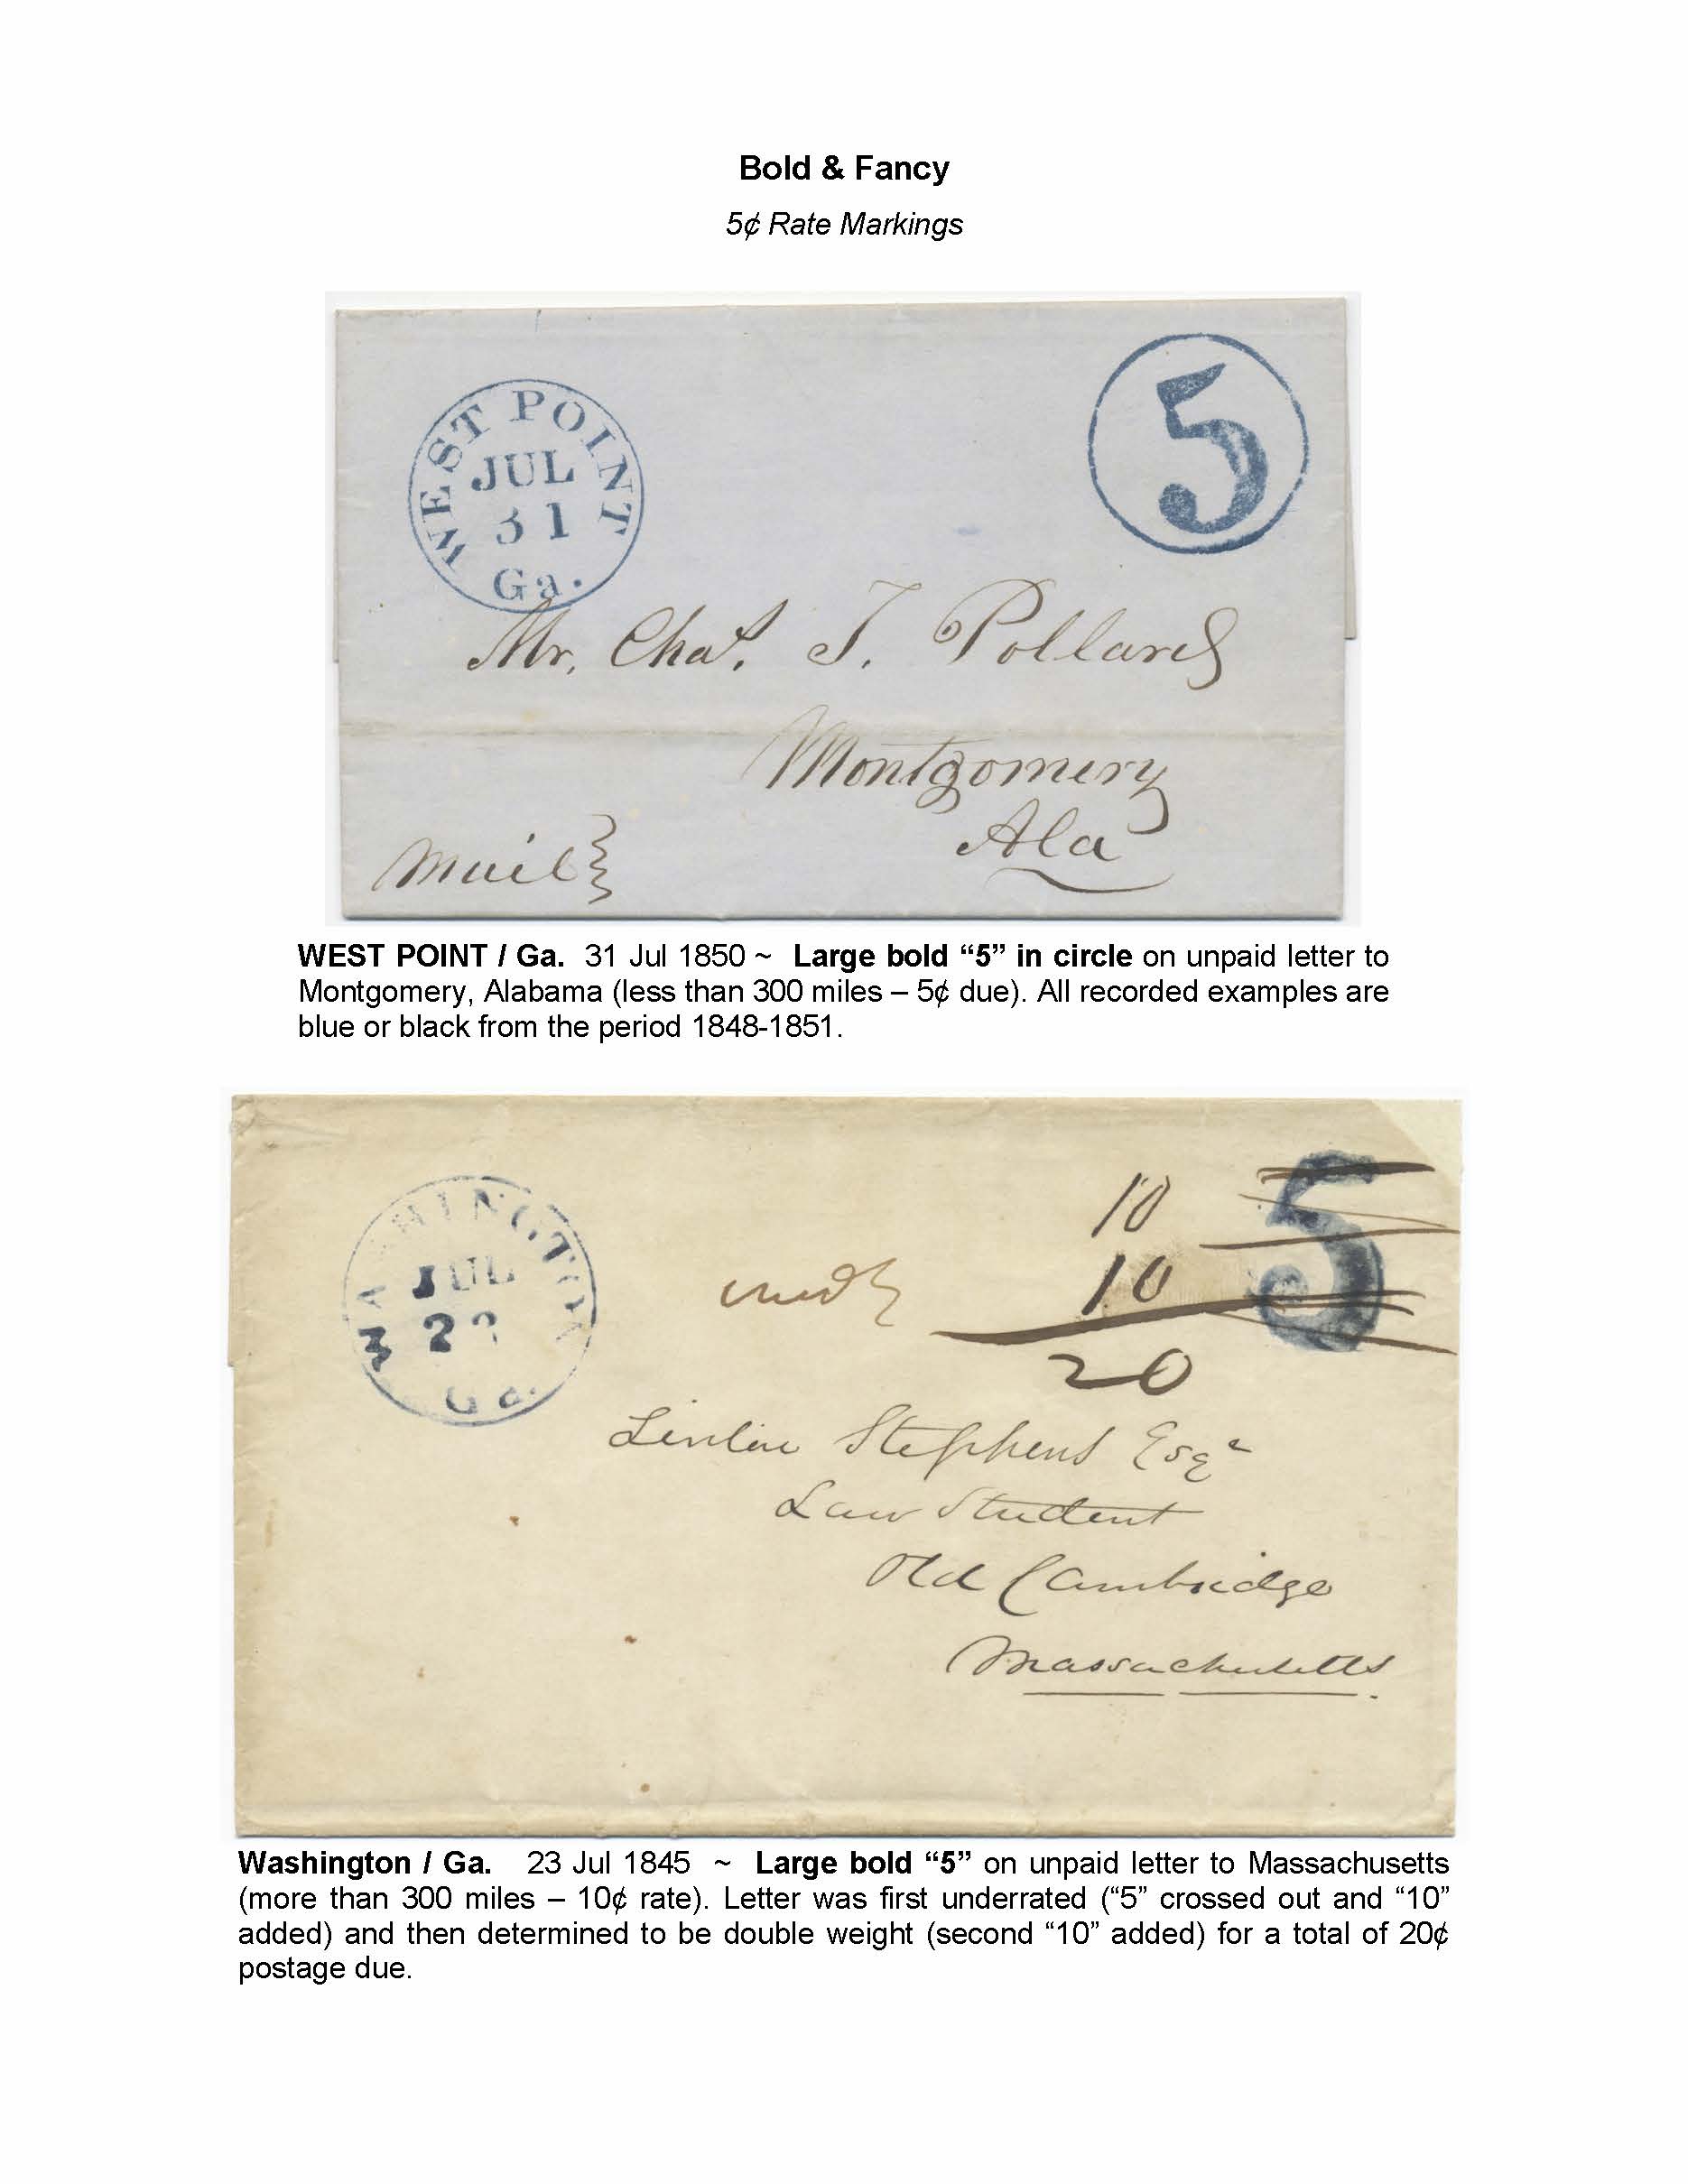 Bold & Fancy
5¢ Rate Markings
WEST POINT
JUL
31
Ga.
5
Mr. Chas. T. Pollard
Montgomery
Ala
Mail
WEST POINT / Ga. 31 Jul 1850 ~ Large bold “5” in circle on unpaid letter to
Montgomery, Alabama (less than 300 miles – 5¢ due). All recorded examples are
blue or black from the period 1848-1851.
WASHINGTON
JUL
23
Ga.
10
5
10
20
Linton Stephens Esqr
Law Student
Old Cambridge
Massachusetts
Washington / Ga. 23 Jul 1845 ~ Large bold “5” on unpaid letter to Massachusetts
(more than 300 miles – 10¢ rate). Letter was first underrated (“5” crossed out and “10”
added) and then determined to be double weight (second “10” added) for a total of 20¢
postage due.